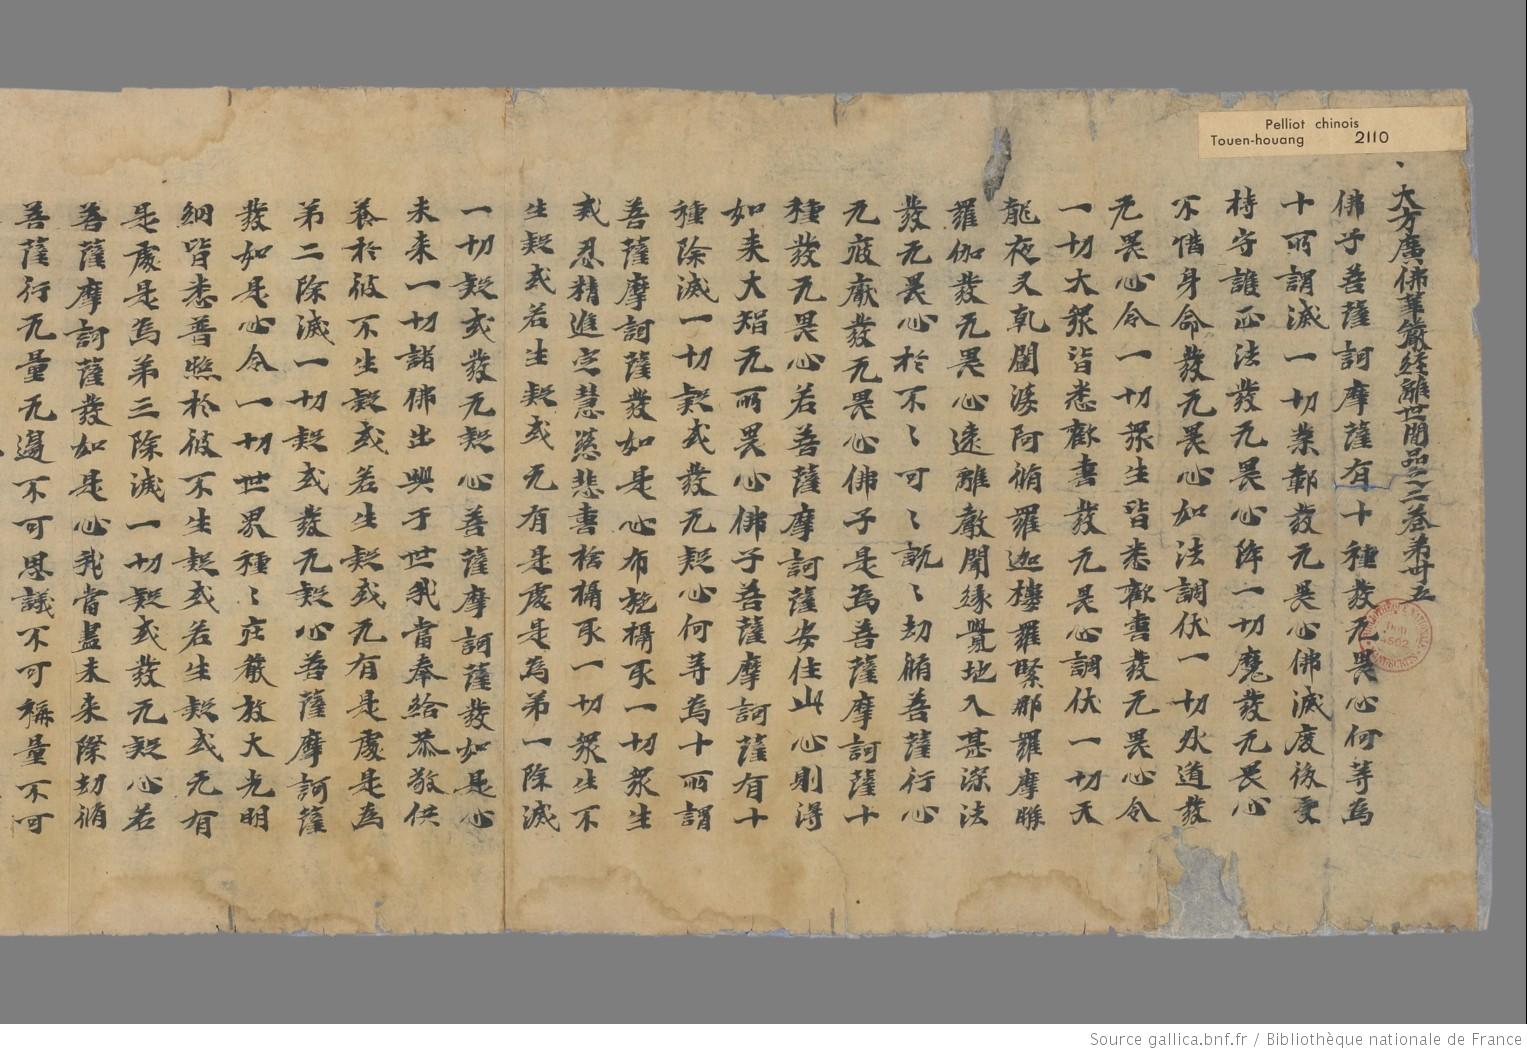 Pelliot chinois
Touen-houang 2110
大方廣佛華嚴經離世間品之二卷第卅五
佛子菩薩訶摩薩有十種發无畏心何等為
十所謂滅一切業鄣發无畏心佛滅度後受
持守護正法發无畏心降一切魔發无畏心
不惜身命發无畏心如法調伏一切外道發
无畏心令一切眾生皆悉歡喜發无畏心令
一切大眾皆悉歡喜發无畏心調伏一切天
龍夜叉乹闥婆阿脩羅迦樓羅緊那羅摩睺
羅伽發无畏心遠離聲聞緣覺地入甚深法
發无畏心於不〻可〻說〻劫脩菩薩行心
无疲厭發无畏心佛子是為菩薩摩訶薩十
種發无畏心若菩薩摩訶薩安住此心則得
如来大智无所畏心佛子菩薩摩訶薩有十
種除滅一切疑或發无疑心何等為十所謂
菩薩摩訶薩發如是心布施攝取一切眾生
戒忍精進定慧慈悲喜捨攝取一切眾生不
生疑或若生疑或无有是處是為弟一除滅
一切疑或發无疑心菩薩摩訶薩發如是心
未来一切諸佛出興于世我當奉給恭敬供
養於彼不生疑或若生疑或无有是處是為
弟二除滅一切疑或發无疑心菩薩摩訶薩
發如是心令一切世界種〻庄嚴放大光明
網皆悉普照於彼不生疑或若生疑或无有
是處是為弟三除滅一切疑或發无疑心若
菩薩摩訶薩發如是心我當盡未来際劫脩
菩薩行无量无邊不可思議不可稱量不可
Source gallica.bnf.fr / Bibliothèque nationale de France